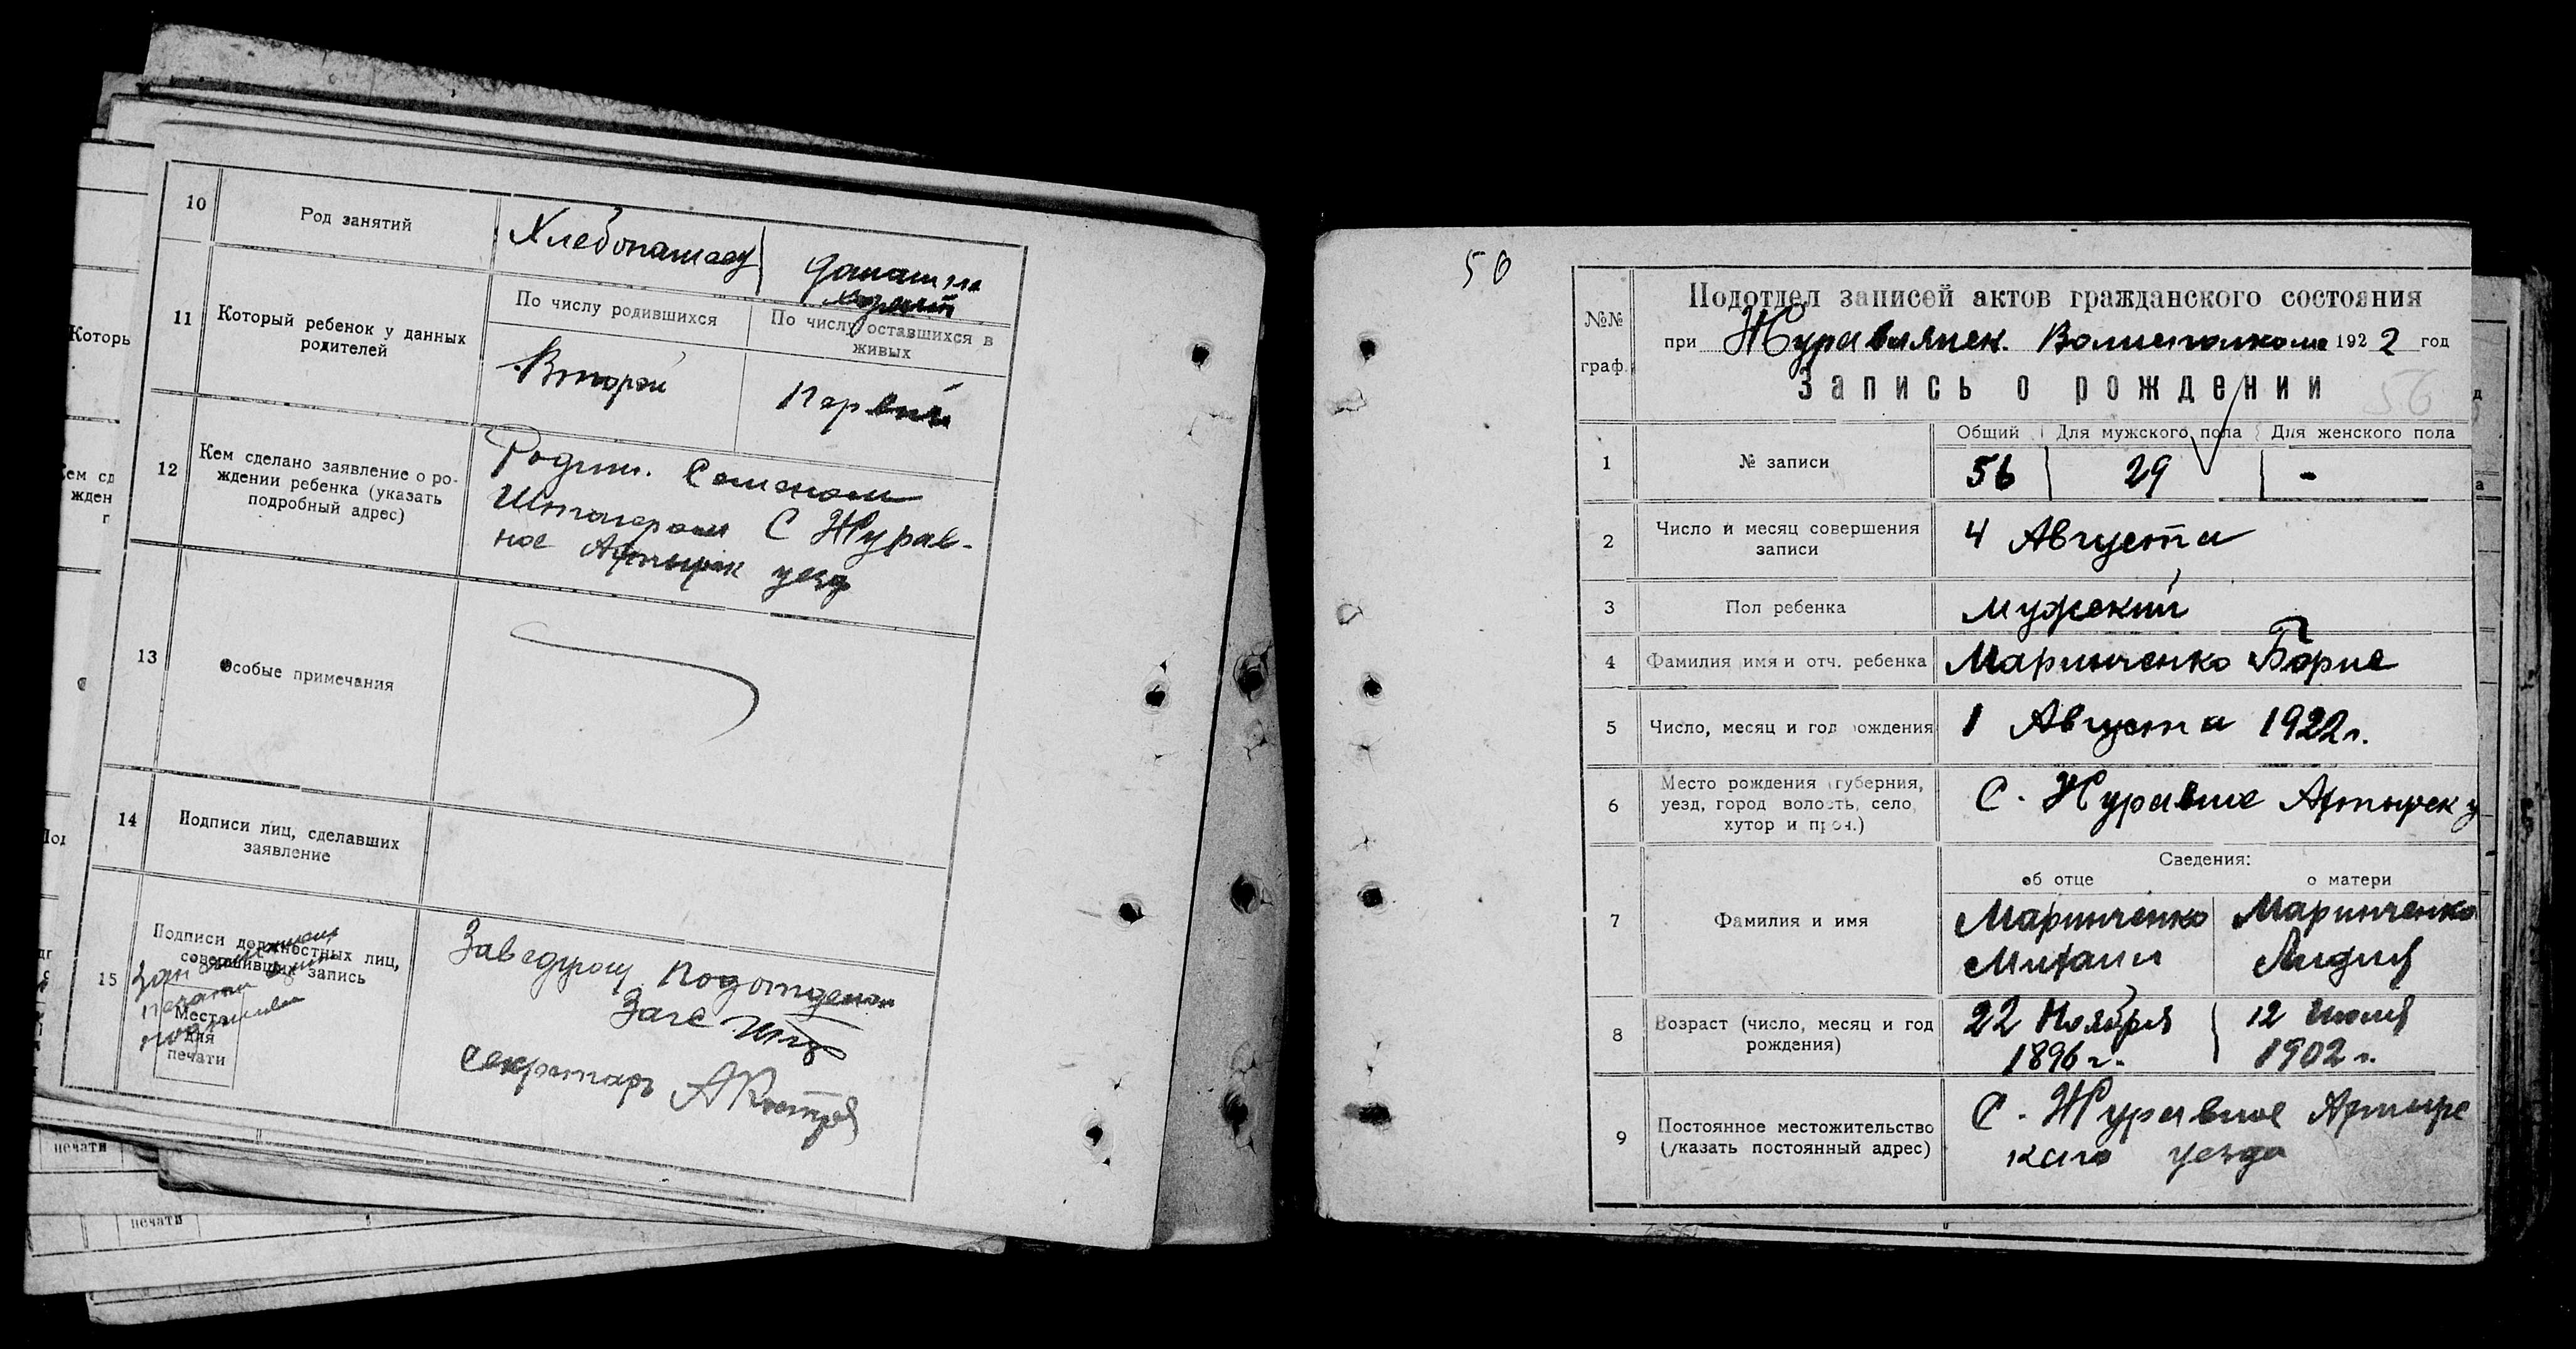 10
Род занятий
Хлебопашец
домашн.
11
Который ребенок у данных
родителей
По числу родившихся
По числу оставшихся в
живых
Второй
Первый
12
Кем сделано заявление о ро-
ждении ребенка (указать
подробный адрес)
Родит.
С Журав-
ное Ахтырск уезд
13
Особые примечания
14
Подписи лиц, сделавших
заявление
15
Подписи должностных лиц,
совершивших запись
Место
для
печати
Заведующ Подотделом
Загс
Секретарь
Которы
печати
печати
50
№№
граф.
Подотдел записей актов гражданского состояния
при Журавлянск. Волисполкоме 1922 год
Запись о рождении
56
1
№ записи
Общий
Для мужского пола
Для женского пола
56
29
-
2
Число и месяц совершения
записи
4 Августа
3
Пол ребенка
мужский
4
Фамилия имя и отч. ребенка
Маринченко Борис
5
Число, месяц и год рождения
1 Августа 1922 г.
6
Место рождения (губерния,
уезд, город волость, село,
хутор и проч.)
С. Журавное Ахтырск у
Сведения:
об отце
о матери
7
Фамилия и имя
Маринченко
Михаил
Маринченко
Лидия
8
Возраст (число, месяц и год
рождения)
22 Ноября
1896 г.
12 Июля
1902 г.
9
Постоянное местожительство
(указать постоянный адрес)
С. Журавное Ахтырс
каго уезда